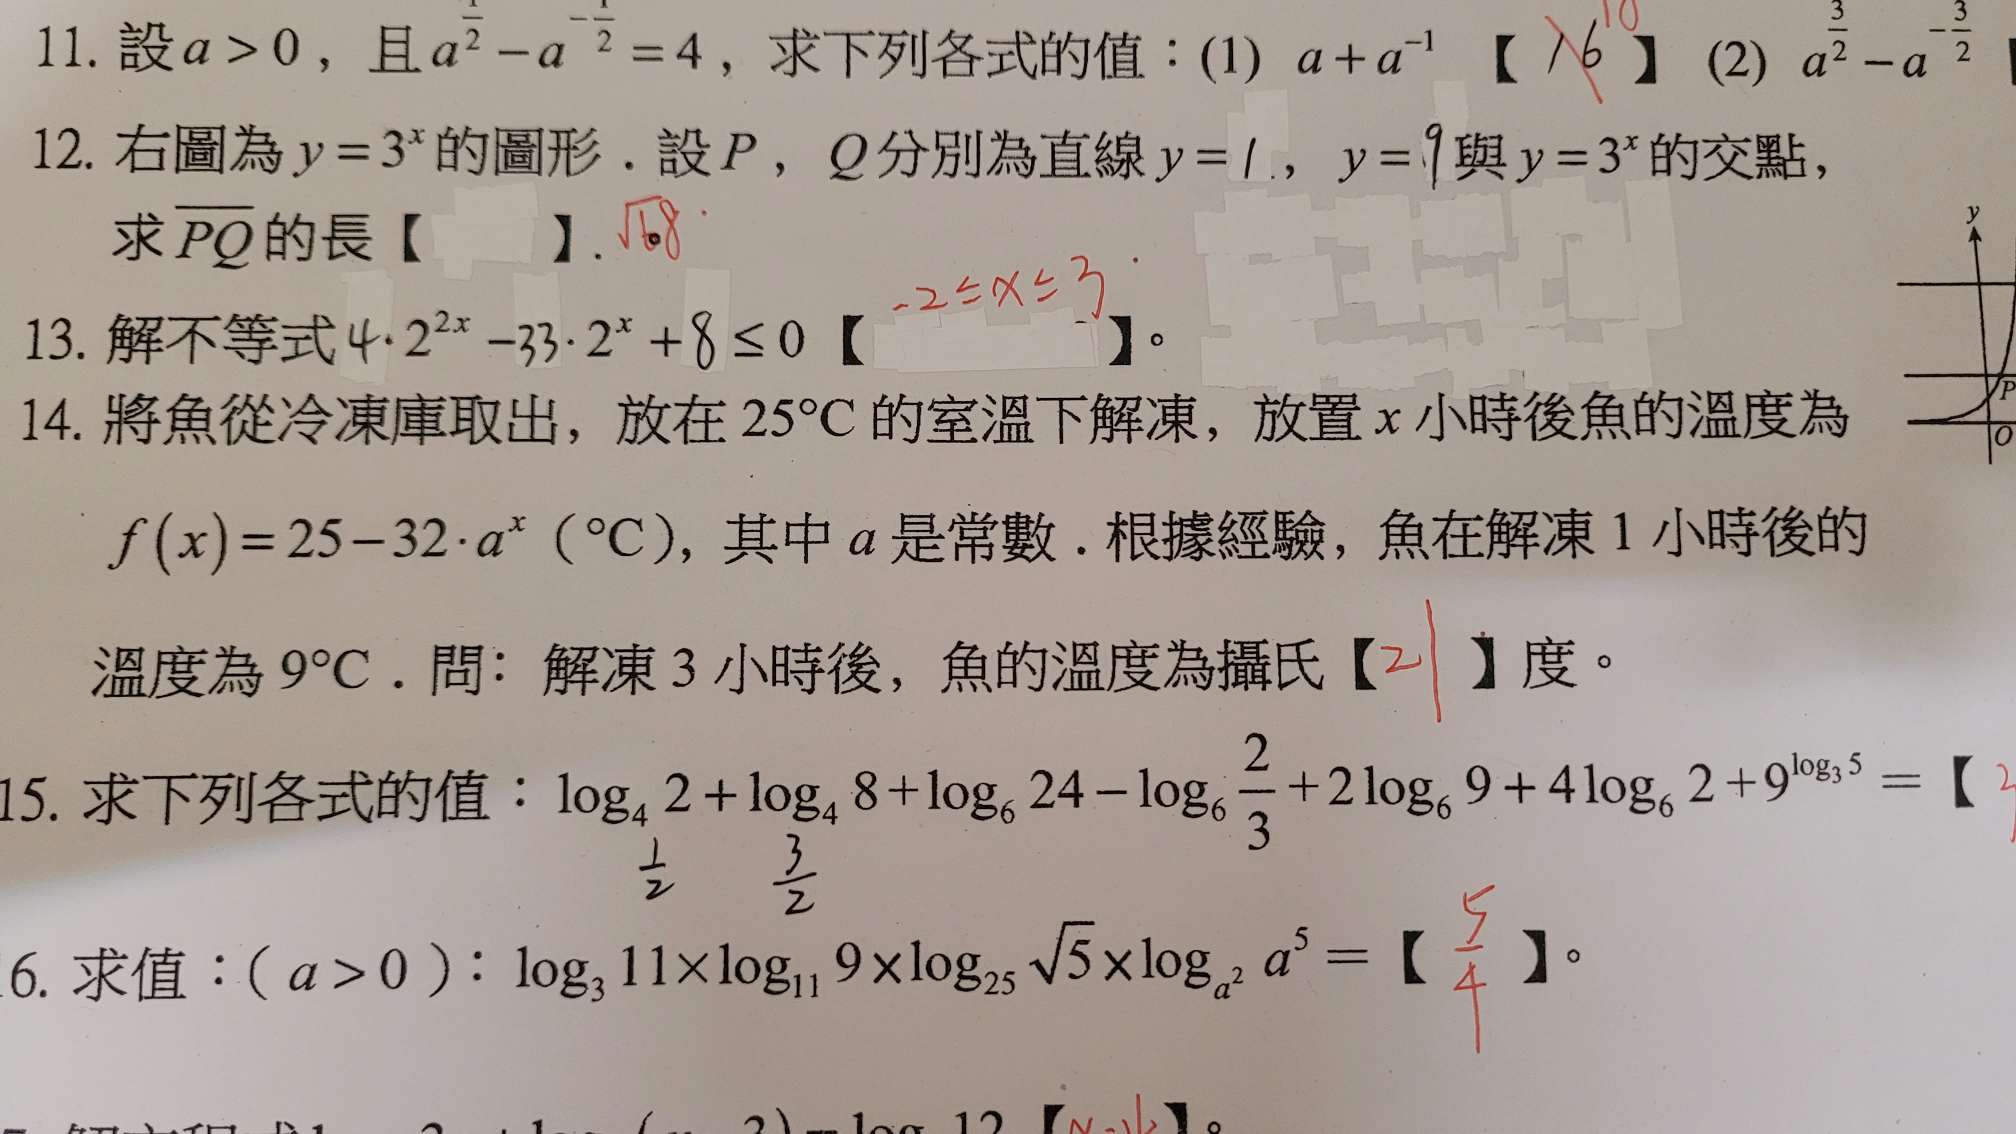 11. 設 a > 0，且 a^{1/2} − a^{−1/2} = 4，求下列各式的值：(1) a + a^{−1} 【 16 】 (2) a^{3/2} − a^{−3/2}
12. 右圖為 y = 3^x 的圖形．設 P，Q 分別為直線 y = 1，y = 9 與 y = 3^x 的交點，
求 PQ 的長【 】. √68
y
-2 ≤ x ≤ 3
13. 解不等式 4·2^{2x} −33·2^x + 8 ≤ 0 【 】。
P
14. 將魚從冷凍庫取出，放在 25°C 的室溫下解凍，放置 x 小時後魚的溫度為
O
f(x) = 25 − 32·a^x（°C），其中 a 是常數．根據經驗，魚在解凍 1 小時後的
溫度為 9°C．問：解凍 3 小時後，魚的溫度為攝氏【 21 】度。
15. 求下列各式的值：log_4 2 + log_4 8 + log_6 24 − log_6 2/3 + 2 log_6 9 + 4 log_6 2 + 9^{log_3 5} = 【
1/2 3/2
6. 求值：( a > 0 )：log_3 11 × log_{11} 9 × log_{25} √5 × log_{a^2} a^5 = 【 5/4 】。
12 【 】。